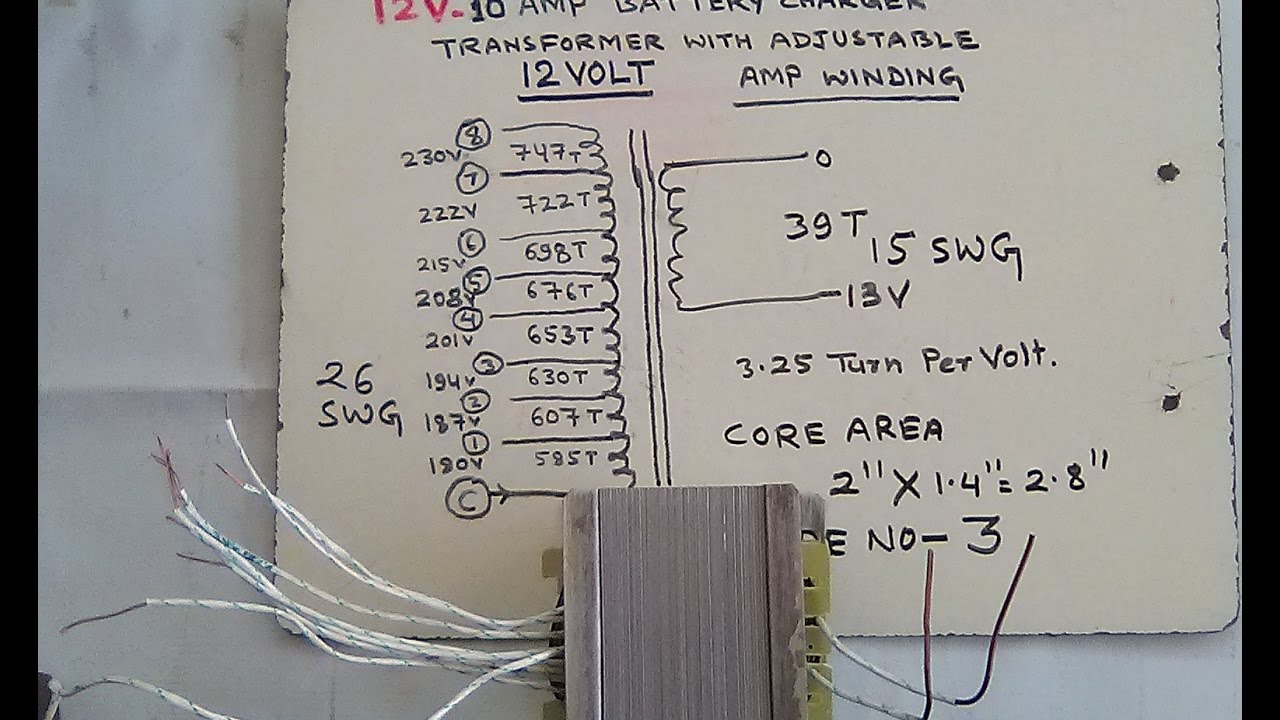 12V-10 AMP BATTERY CHARGER
TRANSFORMER WITH ADJUSTABLE
12 VOLT AMP WINDING
8
230V 747T
7
222V 722T
6
215V 698T
5
208V 676T
4
201V 653T
3
194V 630T
2
187V 607T
1
180V 585T
C
26
SWG
0
39T
15 SWG
13V
3.25 Turn Per Volt.
CORE AREA
2" X 1.4" = 2.8"
NO- 3